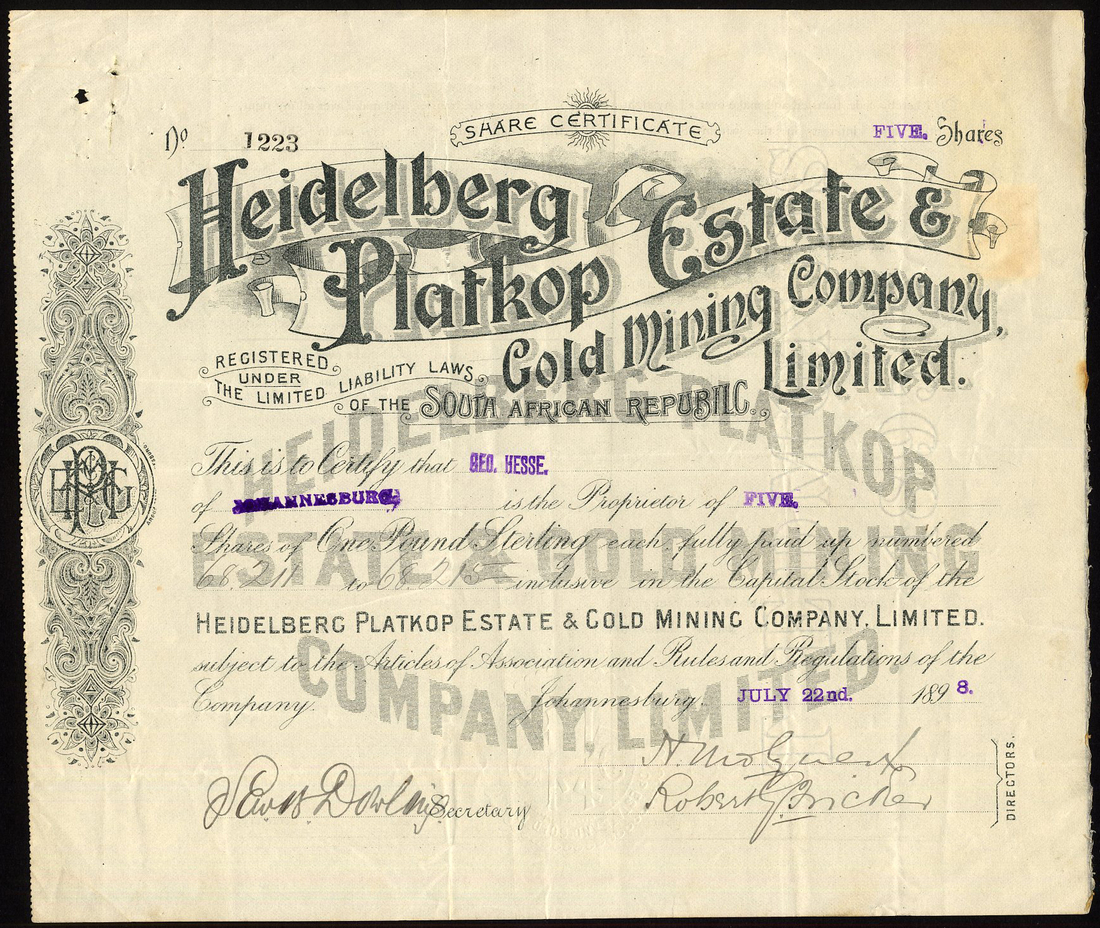 SHARE CERTIFICATE
No 1223
FIVE. Shares
Heidelberg
Platkop Estate &
Gold Mining Company,
Limited.
REGISTERED
UNDER
THE LIMITED LIABILITY LAWS
OF THE SOUTH AFRICAN REPUBLIC.
This is to Certify that GEO. HESSE.
of JOHANNESBURG, is the Proprietor of FIVE.
Shares of One Pound Sterling each, fully paid up numbered
68.211 to 68.215 inclusive in the Capital Stock of the
HEIDELBERG PLATKOP ESTATE & GOLD MINING COMPANY, LIMITED.
subject to the Articles of Association and Rules and Regulations of the
Company. Johannesburg. JULY 22nd. 1898.
HEIDELBERG PLATKOP
ESTATE & GOLD MINING
COMPANY, LIMITED.
Dowling Secretary
Robert
DIRECTORS.